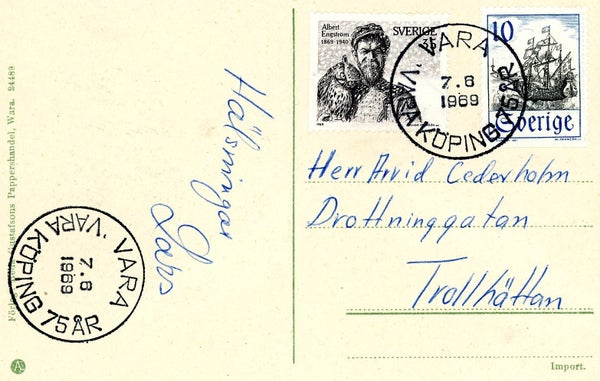 Albert
Engström
1869-1940
SVERIGE
35
10
Sverige
VARA
7.6
1969
VARA KÖPING 75 ÅR
Hälsningar
Lars
Herr Arvid Cederholm
Drottninggatan
Trollhättan
VARA
7.6
1969
VARA KÖPING 75 ÅR
Gustafsons Pappershandel, Wara. 24489
A
Import.